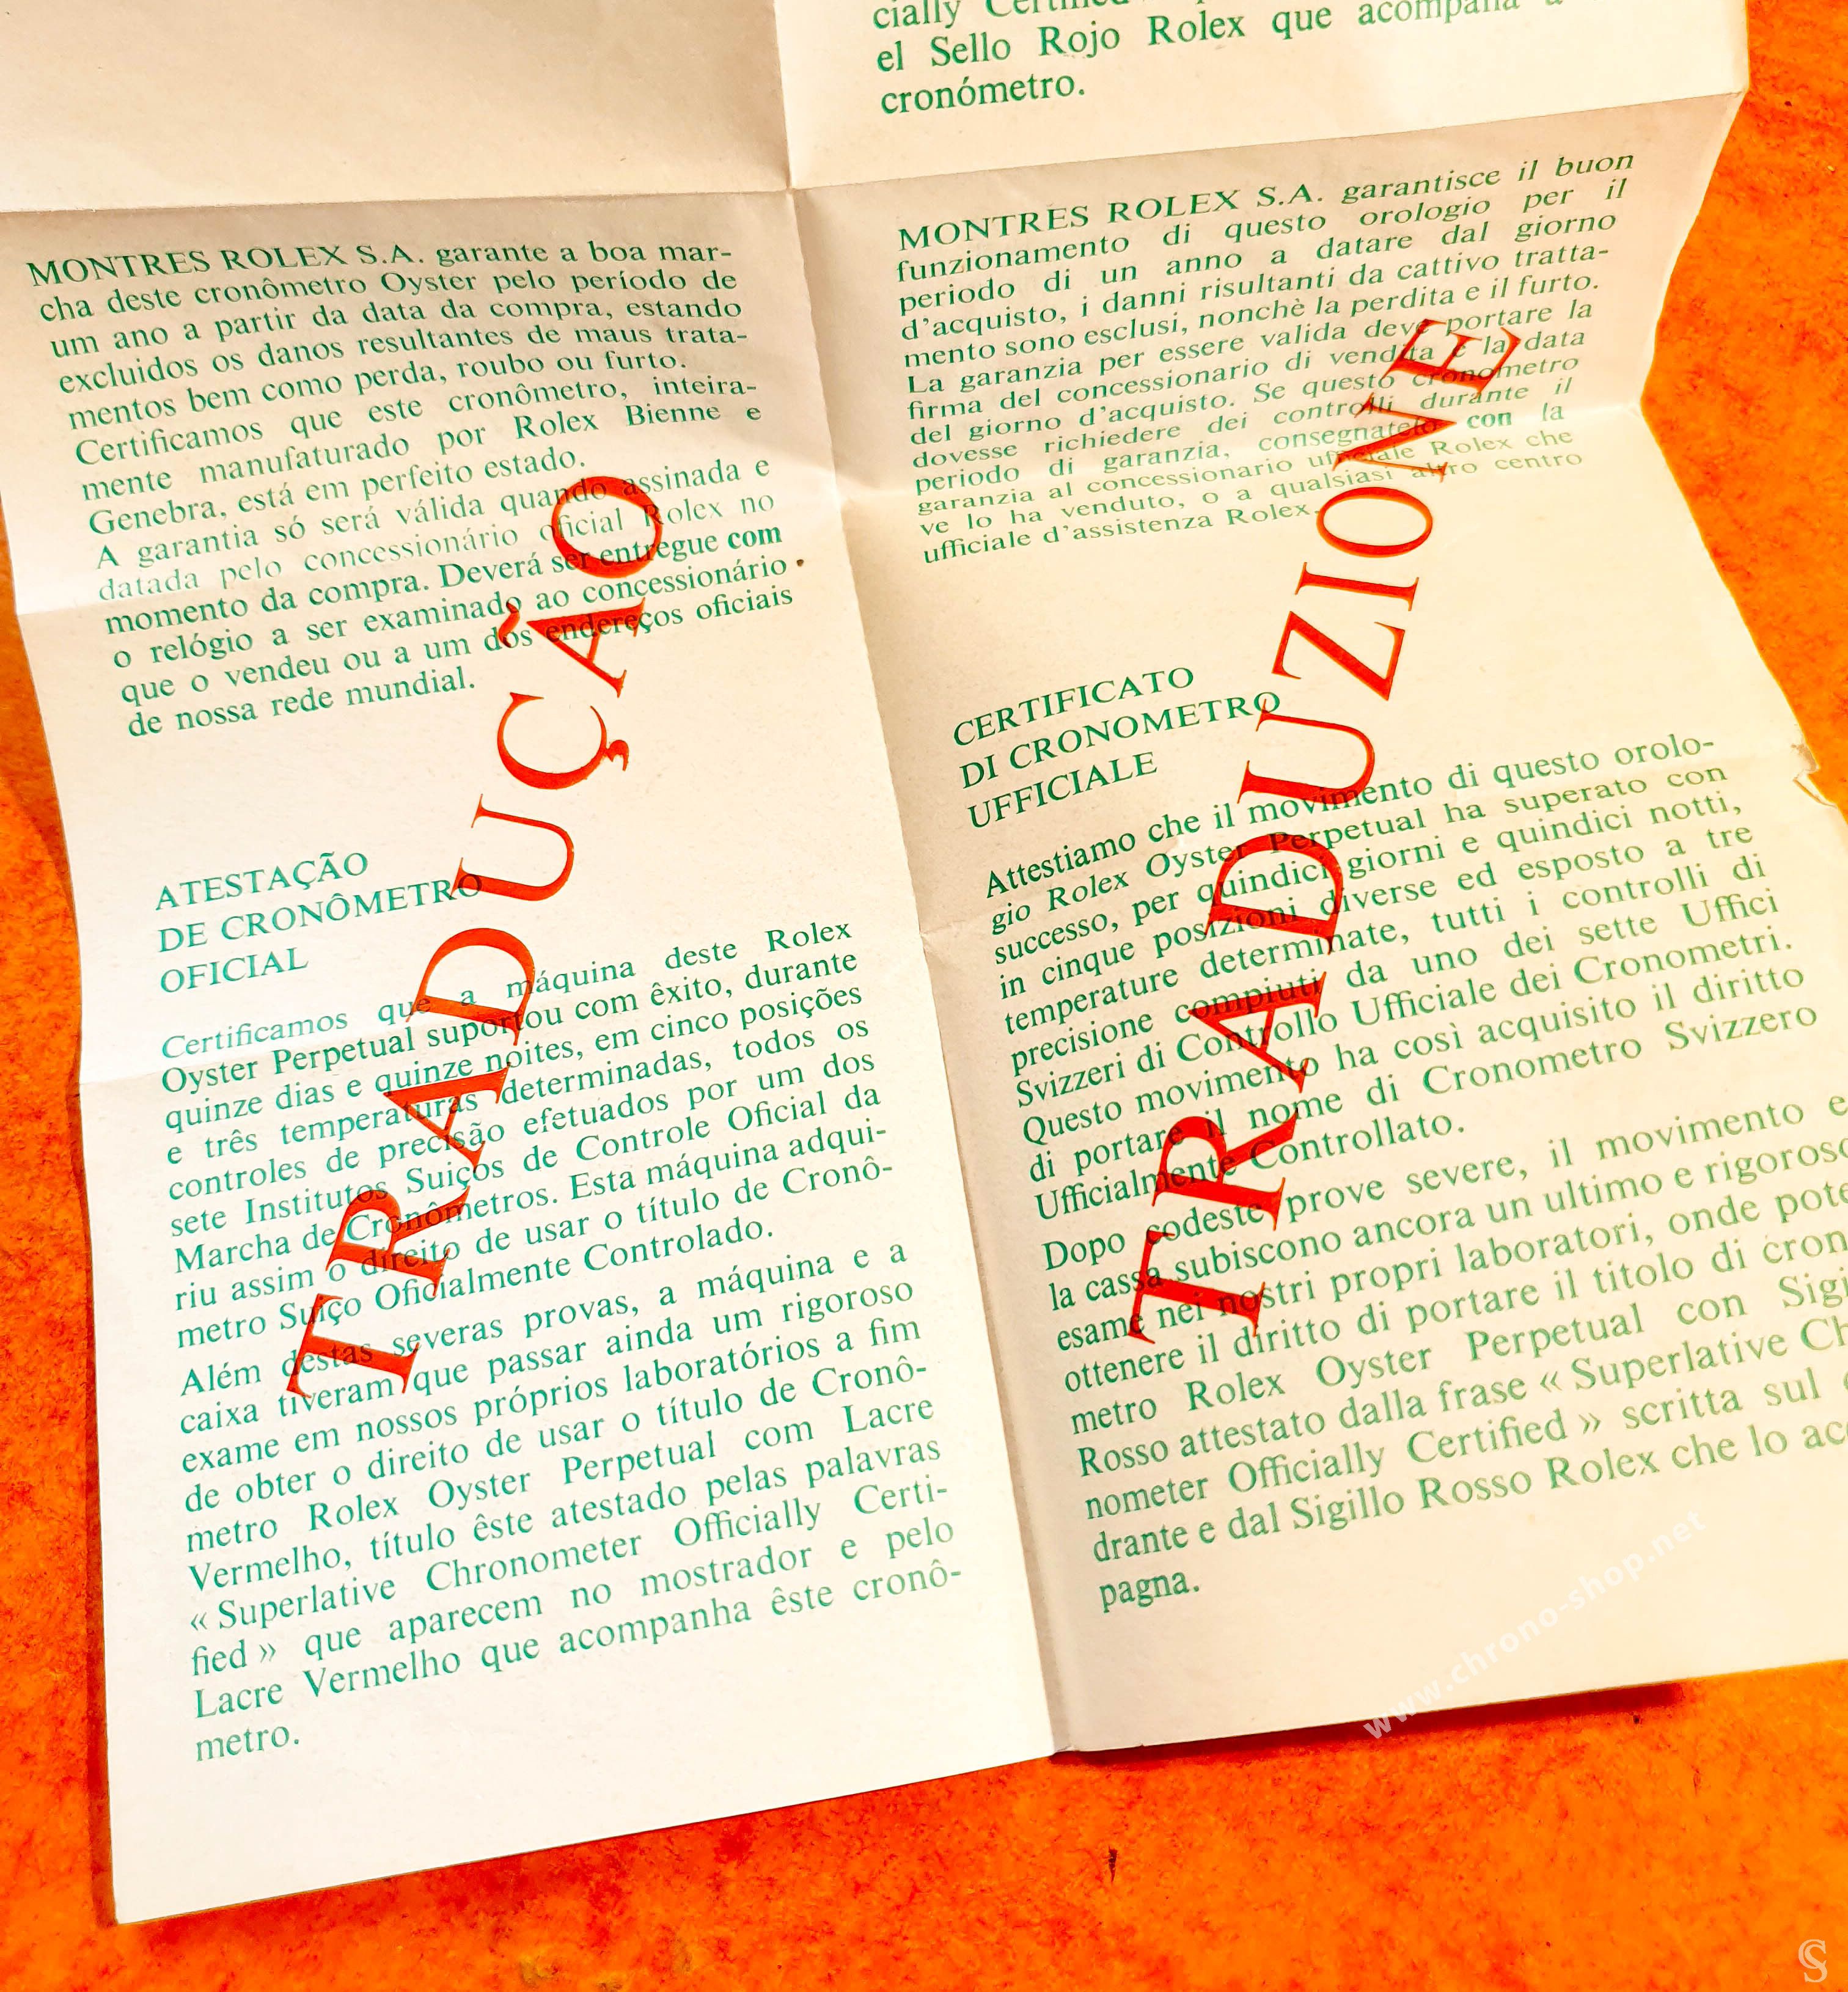 cially
el Sello Rojo Rolex que acompaña
cronómetro.
MONTRES ROLEX S.A. garante a boa mar-
cha deste cronômetro Oyster pelo período de
um ano a partir da data da compra, estando
excluidos os danos resultantes de maus trata-
mentos bem como perda, roubo ou furto.
Certificamos que este cronômetro, inteira-
mente manufaturado por Rolex Bienne e
Genebra, está em perfeito estado.
A garantia só será válida quando assinada e
datada pelo concessionário oficial Rolex no
momento da compra. Deverá ser entregue com
o relógio a ser examinado ao concessionário
que o vendeu ou a um dos endereços oficiais
de nossa rede mundial.
ATESTAÇÃO
DE CRONÔMETRO
OFICIAL
Certificamos que a máquina deste Rolex
Oyster Perpetual suportou com êxito, durante
quinze dias e quinze noites, em cinco posições
e três temperaturas determinadas, todos os
controles de precisão efetuados por um dos
sete Institutos Suiços de Controle Oficial da
Marcha de Cronômetros. Esta máquina adqui-
riu assim o direito de usar o título de Cronô-
metro Suiço Oficialmente Controlado.
Além destas severas provas, a máquina e a
caixa tiveram que passar ainda um rigoroso
exame em nossos próprios laboratórios a fim
de obter o direito de usar o título de Cronô-
metro Rolex Oyster Perpetual com Lacre
Vermelho, título êste atestado pelas palavras
« Superlative Chronometer Officially Certi-
fied » que aparecem no mostrador e pelo
Lacre Vermelho que acompanha êste cronô-
metro.
TRADUÇÃO
MONTRES ROLEX S.A. garantisce il buon
funzionamento di questo orologio per il
periodo di un anno a datare dal giorno
d'acquisto, i danni risultanti da cattivo tratta-
mento sono esclusi, nonchè la perdita e il furto.
La garanzia per essere valida deve portare la
firma del concessionario di vendita e la data
del giorno d'acquisto. Se questo cronometro
dovesse richiedere dei controlli durante il
periodo di garanzia, consegnatelo con la
garanzia al concessionario ufficiale Rolex che
ve lo ha venduto, o a qualsiasi altro centro
ufficiale d'assistenza Rolex.
CERTIFICATO
DI CRONOMETRO
UFFICIALE
Attestiamo che il movimento di questo orolo-
gio Rolex Oyster Perpetual ha superato con
successo, per quindici giorni e quindici notti,
in cinque posizioni diverse ed esposto a tre
temperature determinate, tutti i controlli di
precisione compiuti da uno dei sette Uffici
Svizzeri di Controllo Ufficiale dei Cronometri.
Questo movimento ha così acquisito il diritto
di portare il nome di Cronometro Svizzero
Ufficialmente Controllato.
Dopo codeste prove severe, il movimento e
la cassa subiscono ancora un ultimo e rigoroso
esame nei nostri propri laboratori, onde pote
ottenere il diritto di portare il titolo di cron
metro Rolex Oyster Perpetual con Sigi
Rosso attestato dalla frase « Superlative Ch
nometer Officially Certified » scritta sul
drante e dal Sigillo Rosso Rolex che lo acc
pagna.
TRADUZIONE
www.chrono-shop.net